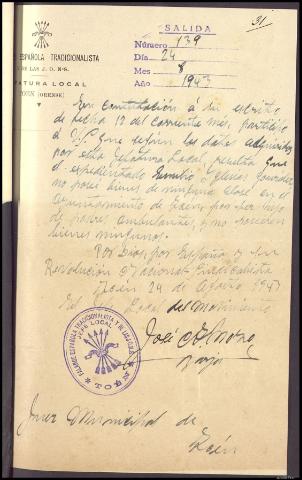 31
SALIDA
Número 139
Día 24
Mes 8
Año 1943
ESPAÑOLA TRADICIONALISTA
DE LAS J. O. N-S.
JEFATURA LOCAL
(ORENSE)
En contestación a su escrito
de fecha 12 del corriente mes, participo
a V.S. que según los datos adquiridos
por esta Jefatura Local, resulta que
el expedientado Iglesias González
no posee bienes de ninguna clase en el
Ayuntamiento de por ser hijo
de padres ambulantes, y no poseen
bienes ningunos.
Por Dios, por España y su
Revolución Nacional Sindicalista
24 de Agosto 1943
El Jefe Local del Movimiento
José
FALANGE ESPAÑOLA TRADICIONALISTA Y DE LAS J.O.N.S.
JEFE LOCAL
Juez Municipal de